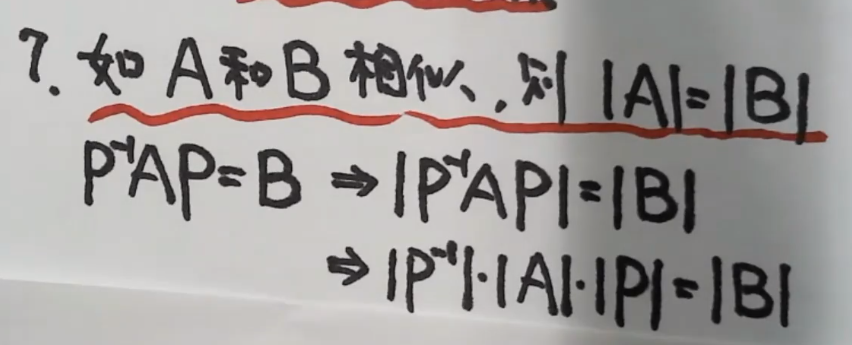 7. 如 A 和 B 相似, 则 |A|=|B|
P⁻¹AP=B ⇒ |P⁻¹AP|=|B|
⇒ |P⁻¹|·|A|·|P|=|B|